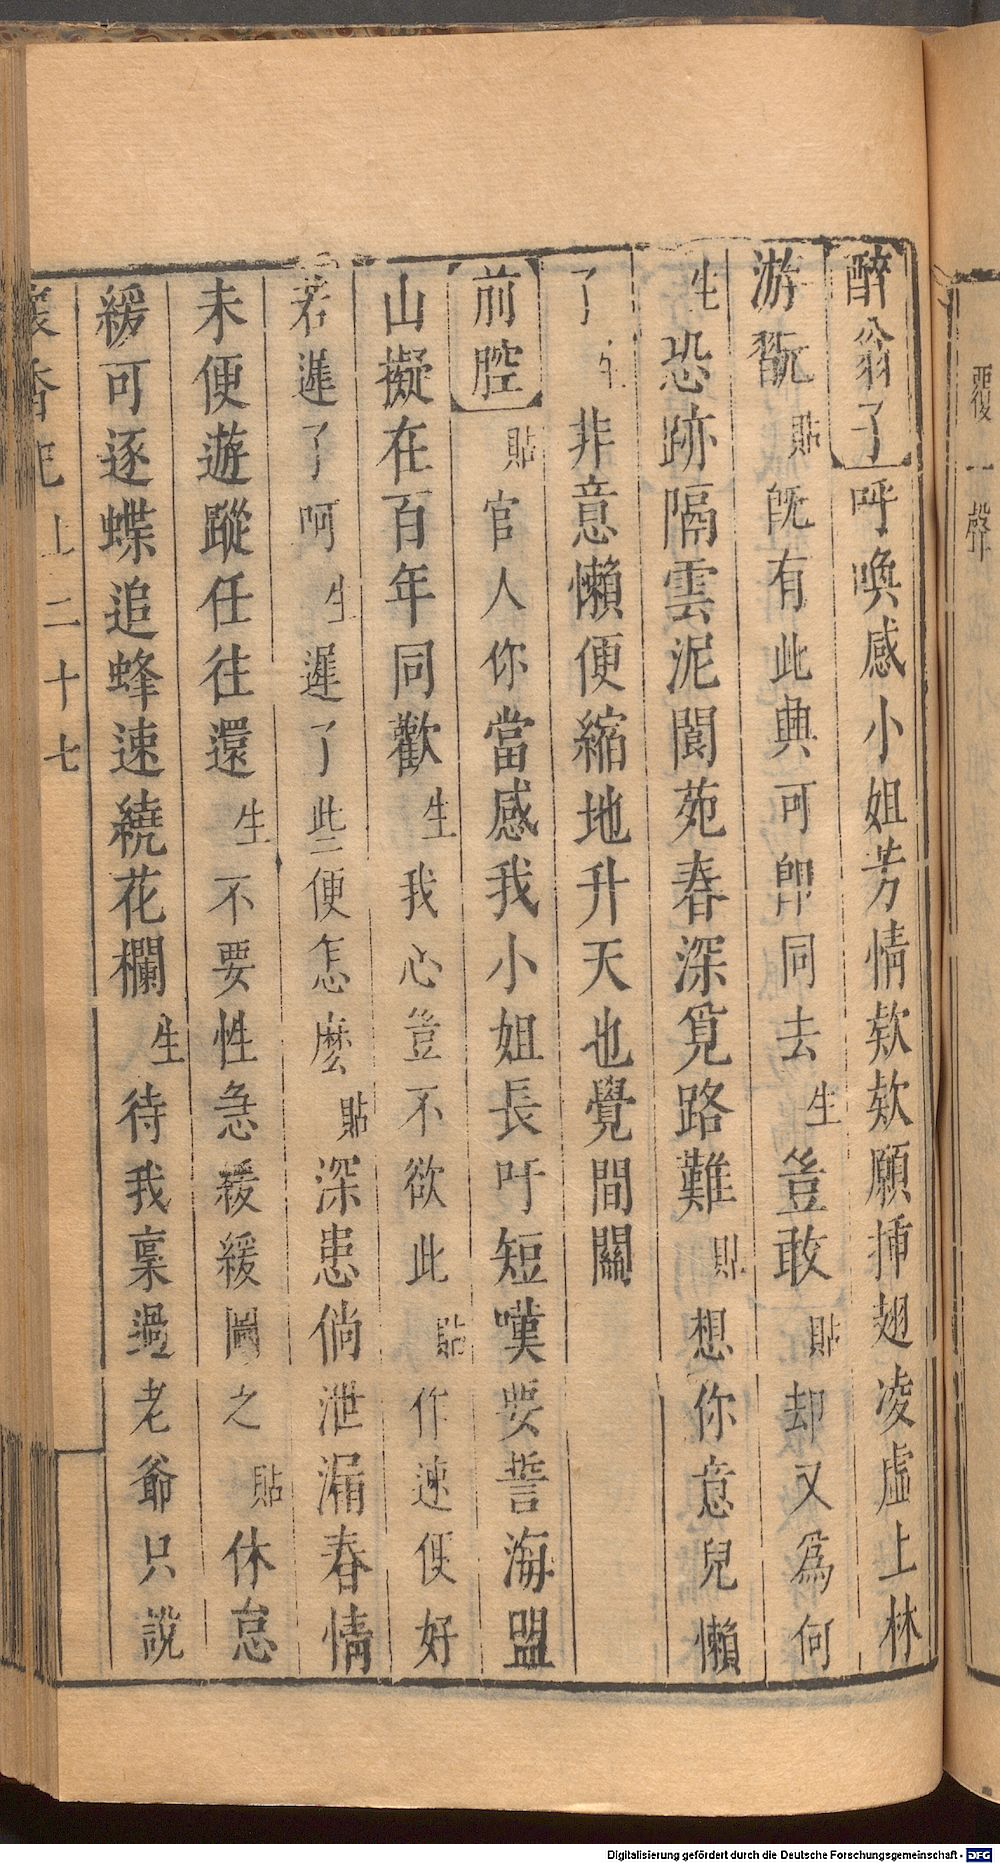 覆一聲
醉翁子呼喚感小姐芳情欸欸願挿翅凌虛上林
游翫貼旣有此興可卽同去生豈敢貼却又爲何
生恐跡隔雲泥閬苑春深覓路難貼想你意兒懶
了生非意懶便縮地升天也覺間關
前腔貼官人你當感我小姐長吁短嘆要誓海盟
山擬在百年同歡生我心豈不欲此貼作速便好
若遲了呵生遲了些便怎麽貼深患倘泄漏春情
未便遊蹤任往還生不要性急緩緩圖之貼休怠
緩可逐蝶追蜂速繞花欄生待我稟過老爺只說
懷香記上二十七
Digitalisierung gefördert durch die Deutsche Forschungsgemeinschaft - DFG